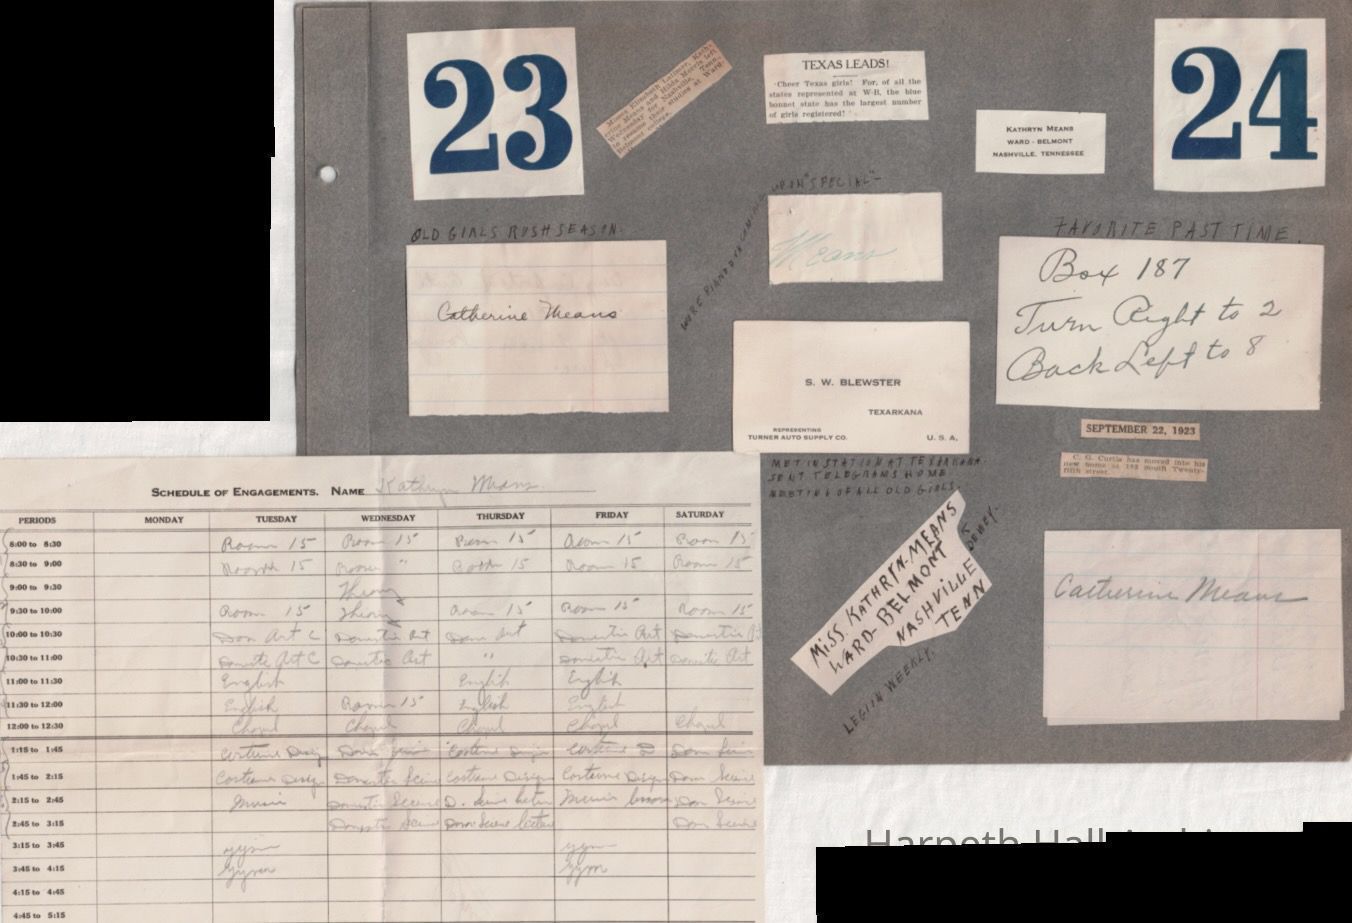 23
Misses Elizabeth Latimer, Kath-
eryn Means and Hilda Morris left
Wednesday for Nashville, Tenn.,
to resume their studies at Ward-
Belmont college.
TEXAS LEADS!
Cheer Texas girls! For, of all the
states represented at W-B, the blue
bonnet state has the largest number
of girls registered!
KATHRYN MEANS
WARD - BELMONT
NASHVILLE, TENNESSEE
24
OLD GIRLS RUSH SEASON.
Catherine Means
UPON "SPECIAL"-
Means
FAVORITE PAST TIME.
Box 187
Turn Right to 2
Back Left to 8
S. W. BLEWSTER
TEXARKANA
REPRESENTING
TURNER AUTO SUPPLY CO.
U. S. A.
MET IN STATION AT TEXARKANA.
SENT TELEGRAMS HOME.
MEETING OF ALL OLD GIRLS.
SEPTEMBER 22, 1923
C. G. Curtis has moved into his
new home at 103 South Twenty-
fifth street.
MISS. KATHRYN-MEANS
WARD-BELMONT
NASHVILLE
TENN
IS DEWEY.
LEGION WEEKLY.
Catherine Means
SCHEDULE OF ENGAGEMENTS. NAME Kathryn Means.
PERIODS MONDAY TUESDAY WEDNESDAY THURSDAY FRIDAY SATURDAY
8:00 to 8:30 Room 15 Room 15 Room 15 Room 15 Room 15
8:30 to 9:00 Room 15 Room " Room 15 Room 15 Room 15
9:00 to 9:30 Theory
9:30 to 10:00 Room 15 Theory Room 15 Room 15 Room 15
10:00 to 10:30 Dom Art C Domestic Art Dom Art Domestic Art Domestic
10:30 to 11:00 Domestic Art C Domestic Art " Domestic Art Domestic Art
11:00 to 11:30 English English English
11:30 to 12:00 English Room 15 English English
12:00 to 12:30 Chapel Chapel Chapel Chapel Chapel
1:15 to 1:45 Costume Desig Dom Costume Desig Costume D Dom Scien
1:45 to 2:15 Costume Desig Domestic Scien Costume Design Costume Design Dom Science
2:15 to 2:45 Music Domestic Science D. Music lesson Dom Science
2:45 to 3:15 Domestic Scienc Dom Science lecture Dom Science
3:15 to 3:45 gym gym
3:45 to 4:15 Gym Gym
4:15 to 4:45
4:45 to 5:15